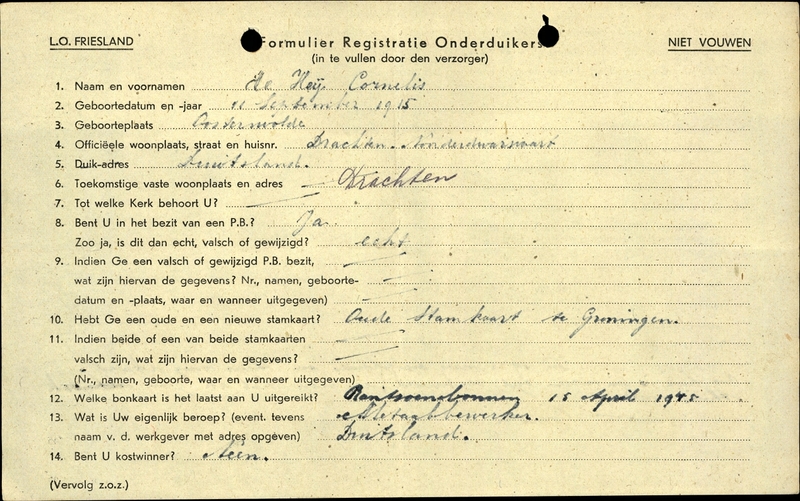 L.O. FRIESLAND Formulier Registratie Onderduikers NIET VOUWEN
(in te vullen door den verzorger)
1. Naam en voornamen de Heij Cornelis
2. Geboortedatum en -jaar 11 September 1915
3. Geboorteplaats Oosterwolde
4. Officiëele woonplaats, straat en huisnr. Drachten.
5. Duik-adres Duitsland.
6. Toekomstige vaste woonplaats en adres Drachten
7. Tot welke Kerk behoort U?
8. Bent U in het bezit van een P.B.? Ja
Zoo ja, is dit dan echt, valsch of gewijzigd? echt
9. Indien Ge een valsch of gewijzigd P.B. bezit,
wat zijn hiervan de gegevens? Nr., namen, geboorte-
datum en -plaats, waar en wanneer uitgegeven)
10. Hebt Ge een oude en een nieuwe stamkaart? Oude Stamkaart te Groningen.
11. Indien beide of een van beide stamkaarten
valsch zijn, wat zijn hiervan de gegevens?
(Nr., namen, geboorte, waar en wanneer uitgegeven)
12. Welke bonkaart is het laatst aan U uitgereikt? Rantsoenbonnen 15 April 1945
13. Wat is Uw eigenlijk beroep? (event. tevens Metaalbewerker.
naam v. d. werkgever met adres opgeven) Duitsland.
14. Bent U kostwinner? Neen.
(Vervolg z.o.z.)